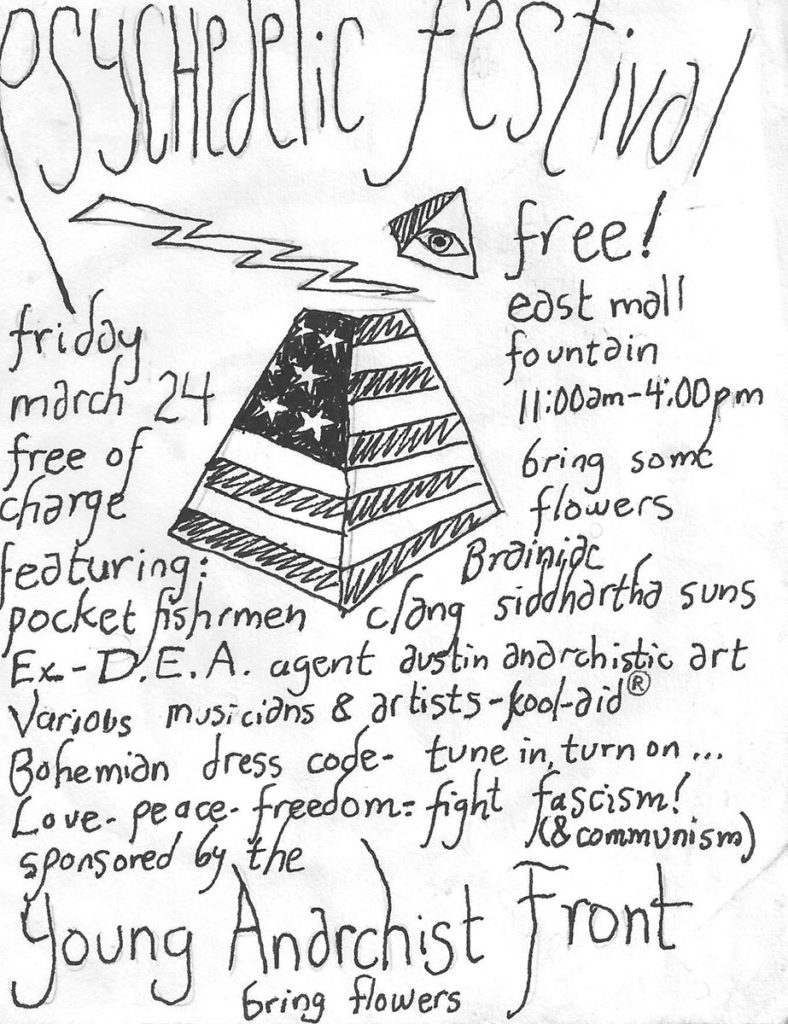 psychedelic festival
friday
march 24
free of
charge
free!
east mall
fountain
11:00am-4:00pm
bring some
flowers
featuring: Brainiac
pocket fishrmen clang siddhartha suns
Ex-D.E.A. agent austin anarchistic art
Various musicians & artists-kool-aid®
Bohemian dress code- tune in, turn on...
Love- peace- freedom= fight fascism!
(& communism)
sponsored by the
Young Anarchist Front
bring flowers